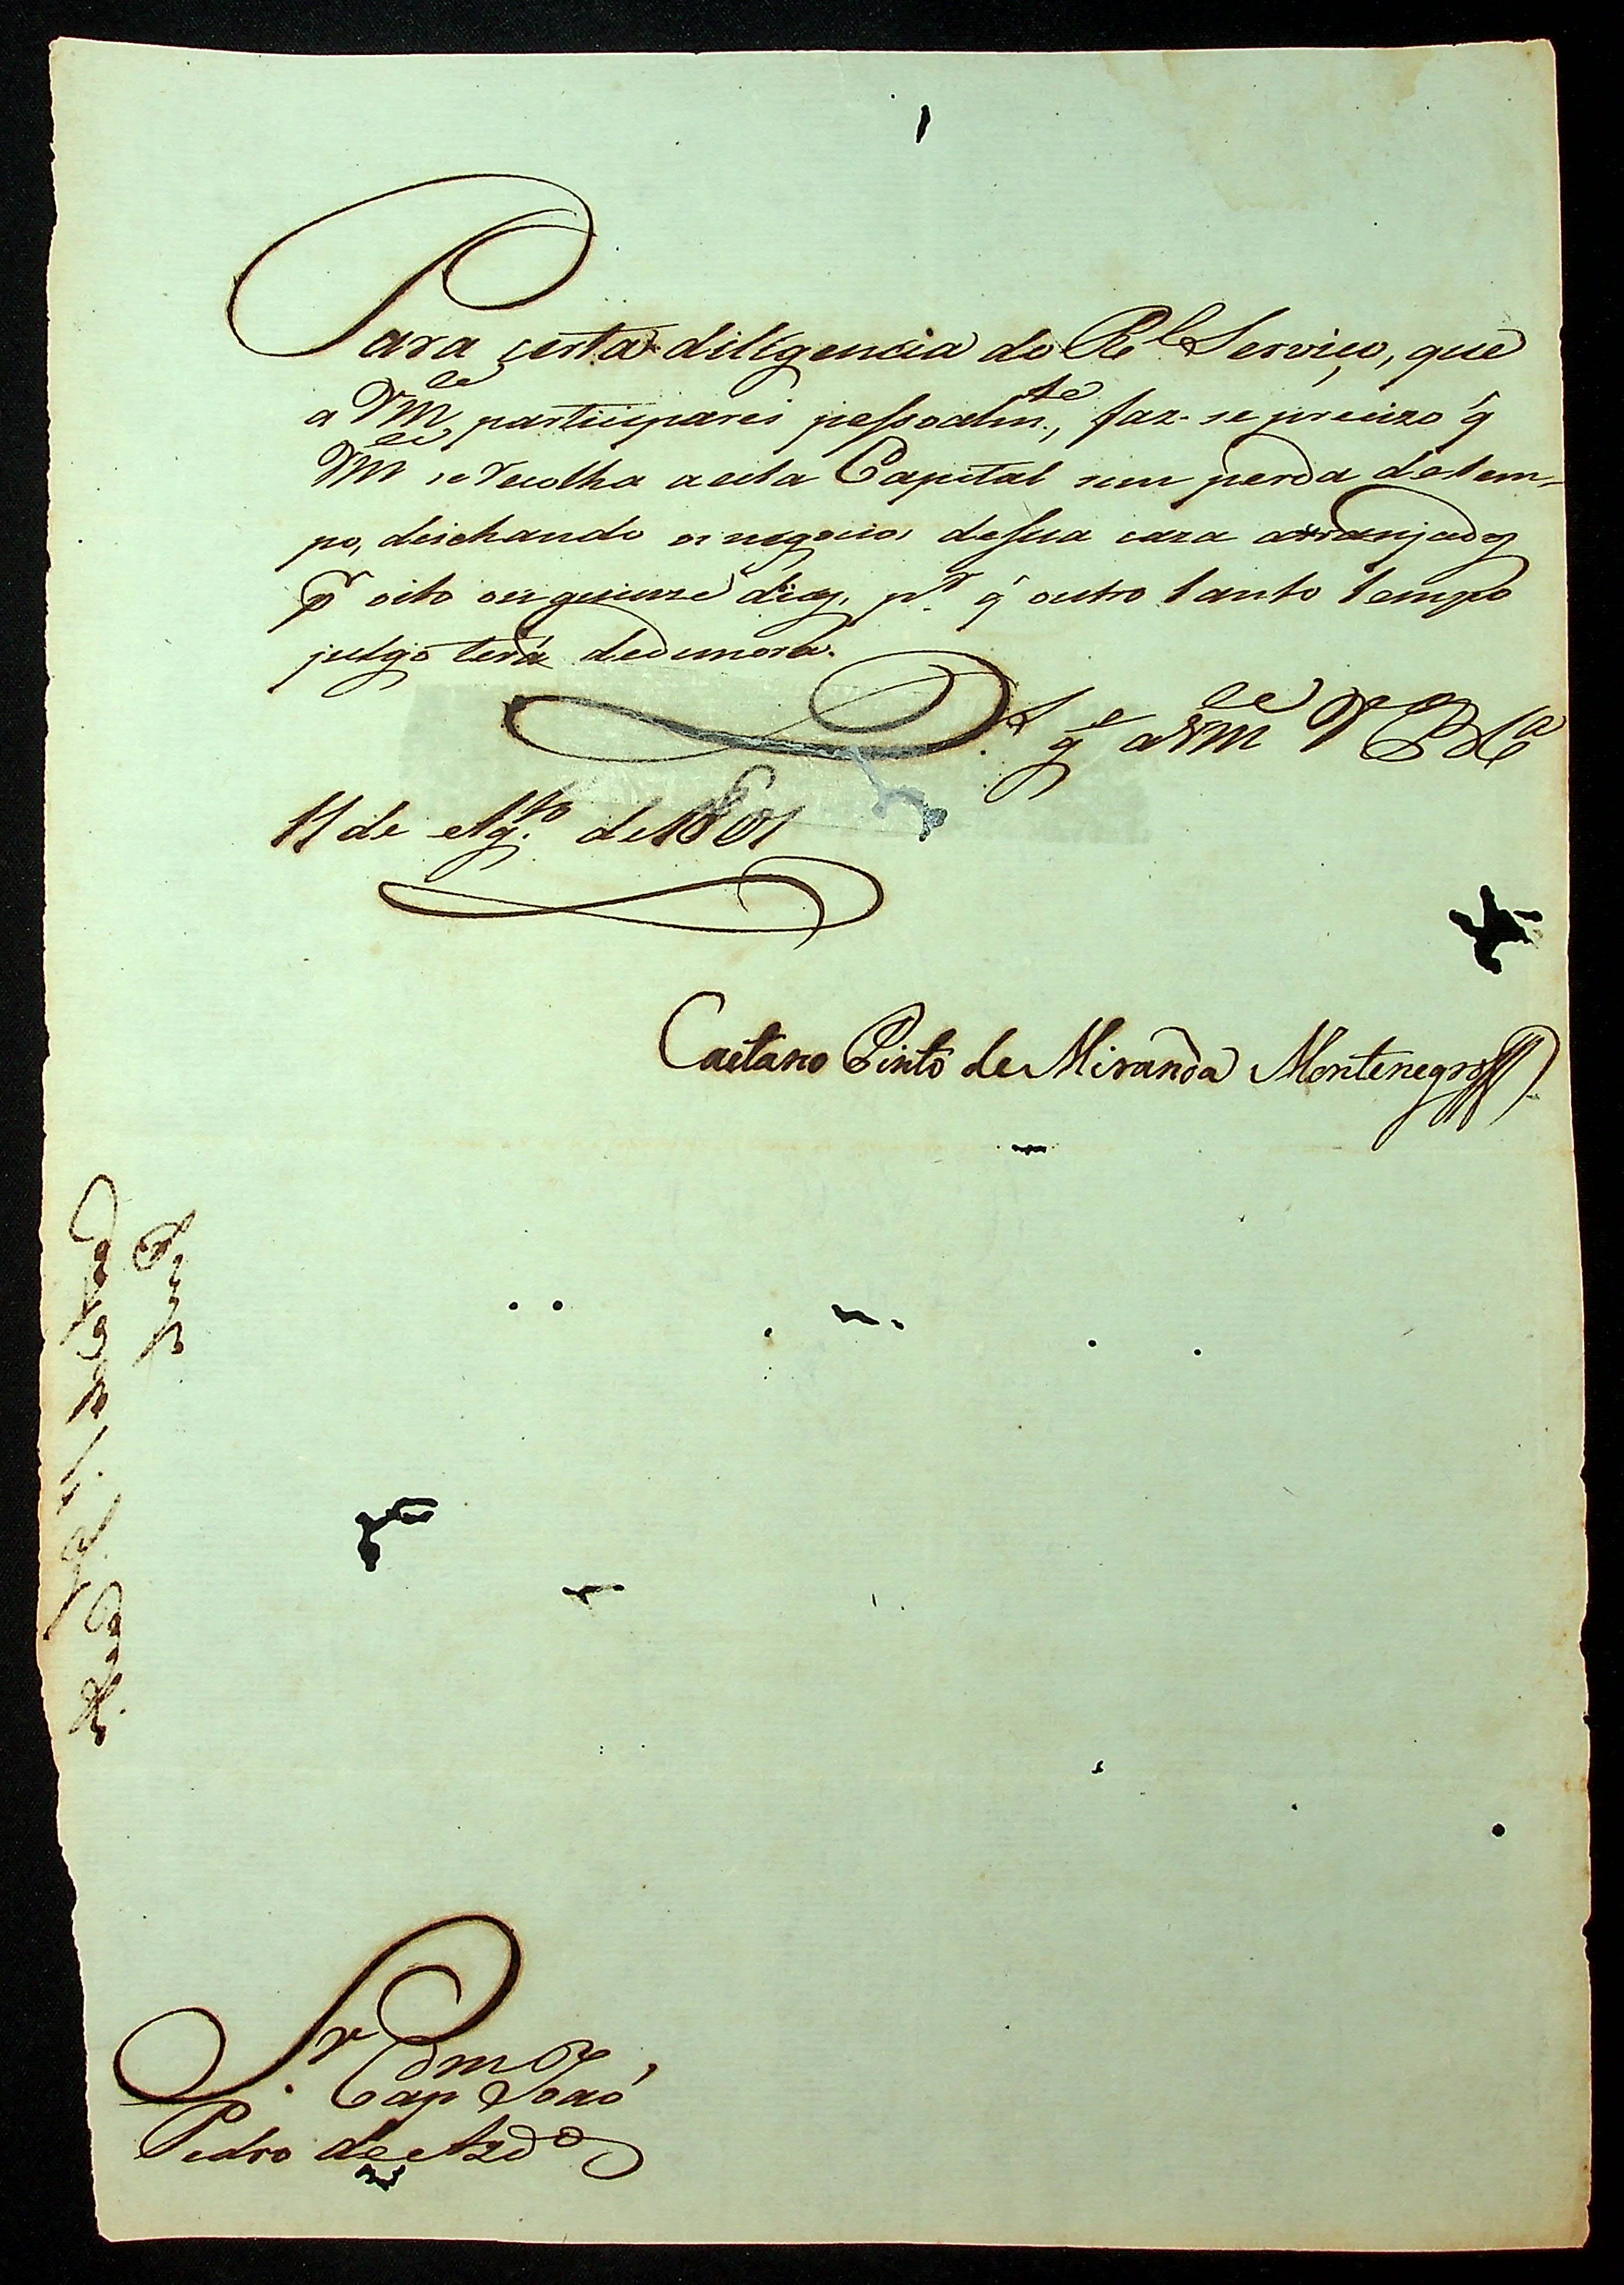 Para certa diligencia do R.l Serviço, que
a Vm.ce participarei pessoalm.te, faz-se precizo q̃
Vm.ce se recolha a esta Capital sem perda de tem-
po, deichando os negocios de sua caza arranjados
p.r oito ou quinze dias, p.r q̃ outro tanto tempo
julgo terá de demora.
D.s g.e a Vm.ce V.a B.a
11 de Ag.to de 1801
Caetano Pinto de Miranda Montenegro
S.r Cap.m João
Pedro de Azd.o